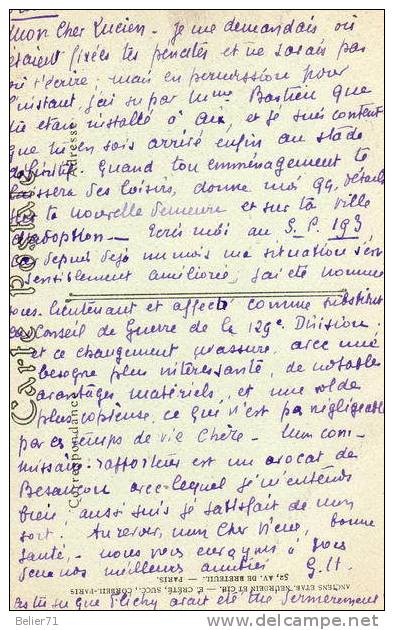 Mon Cher Lucien - Je me demandais où
étaient fixées tes pénates et ne savais pas
où t'écrire; mais en permission pour
l'instant, j'ai su par Mme Bastien que
tu étais installé à Aix, et je suis content
que tu en sois arrivé enfin au stade
définitif. Quand ton emménagement te
laissera des loisirs, donne moi qq. détails
sur ta nouvelle demeure et sur ta ville
d'adoption - Ecris moi au S.P. 193
depuis déjà un mois ma situation s'est
sensiblement améliorée, j'ai été nommé
sous-lieutenant et affecté comme substitut
au Conseil de Guerre de la 129e Division;
et ce changement m'assure, avec une
besogne plus intéressante, de notables
avantages matériels, et une solde
plus copieuse, ce qui n'est pas négligeable
par ces temps de vie chère - Mon com-
missaire-rapporteur est un avocat de
Besançon avec lequel je m'entends
bien; aussi suis je satisfait de mon
sort. Au revoir, mon Cher Vieux, bonne
santé, - nous vous envoyons à
nos meilleures amitiés G.H.
As tu su que Vichy avait été
Carte Postale
Correspondance
Adresse
ANCIENS ETAB. NEURDEIN ET CIE. - E. CRÉTÉ, SUCC., CORBEIL-PARIS
52, AV. DE BRETEUIL. - PARIS.
Belier71
http://www.delcampe.net